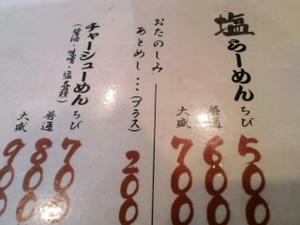 塩らーめん
ちび 500
普通 600
大盛 700
おたのしみ
あとめし…(プラス) 200
チャーシューめん
(醤油・味噌・塩
ちび 700
普通 800
大盛 900